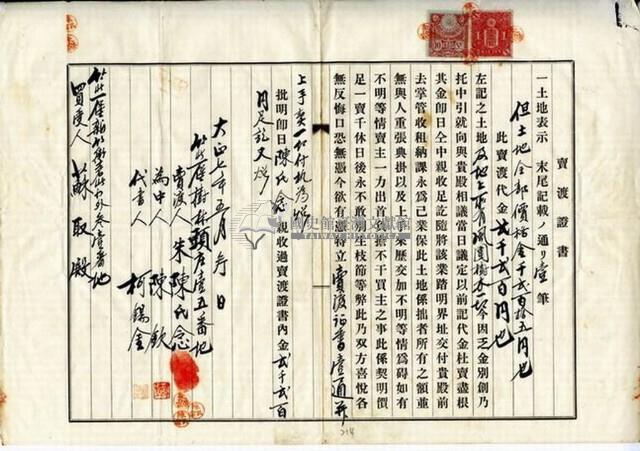 賣渡證書
一土地表示 末尾記載ノ通リ壹筆
但土地全部價格金千弍百拾五円也
此賣渡代金弍千弍百円也
左記之土地及地上所有鳳圓樹木一切今因乏金別創乃
托中引就向與貴殿相議當日議定以前記代金杜賣盡根
其金即日仝中親收足訖隨將該業踏明界址交付貴殿前
去掌管收租納課永爲己業保此土地係拙者所有之額並
無與人重張典掛以及上手來歷交加不明等情爲碍如有
不明等情賣主一力出首抵擋不干買主之事此係契明價
足一賣千休日後永不敢別生枝節等弊此乃双方喜悅各
無反悔口恐無憑今欲有憑特立賣渡证書壹通并
上手契一紙付执爲炤
批明即日陳氏念親收過賣渡證書內金弍千弍百
円足訖又炤
大正七年五月 日
樹林頭庄壹五番地
賣渡人 朱陳氏念
為中人 陳欽
代書人 柯錫金
番地
買受人 蘇取殿
國史館臺灣文獻館
TAIWAN HISTORICA
214